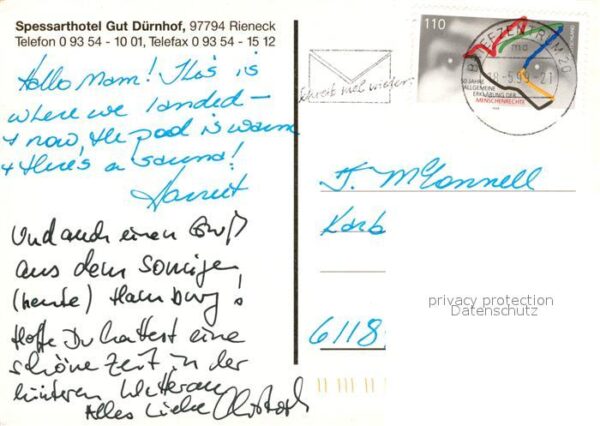 Spessarthotel Gut Dürnhof, 97794 Rieneck
Telefon 0 93 54 - 10 01, Telefax 0 93 54 - 15 12
Hallo Mom! This is
where we landed –
+ now, the pool is warm
+ there's a sauna!
Harriet
Und auch einen Gruß
aus dem sonnigen
(heute) Hamburg!
Hoffe Du hattest eine
schöne Zeit in der
hinteren Wetterau
Alles Liebe Christoph
110
50 JAHRE
ALLGEMEINE
ERKLÄRUNG DER
MENSCHENRECHTE
BRIEFZENTRUM 20
-5.99-21
Schreib mal wieder
J. McConnell
Karb
6118
privacy protection
Datenschutz